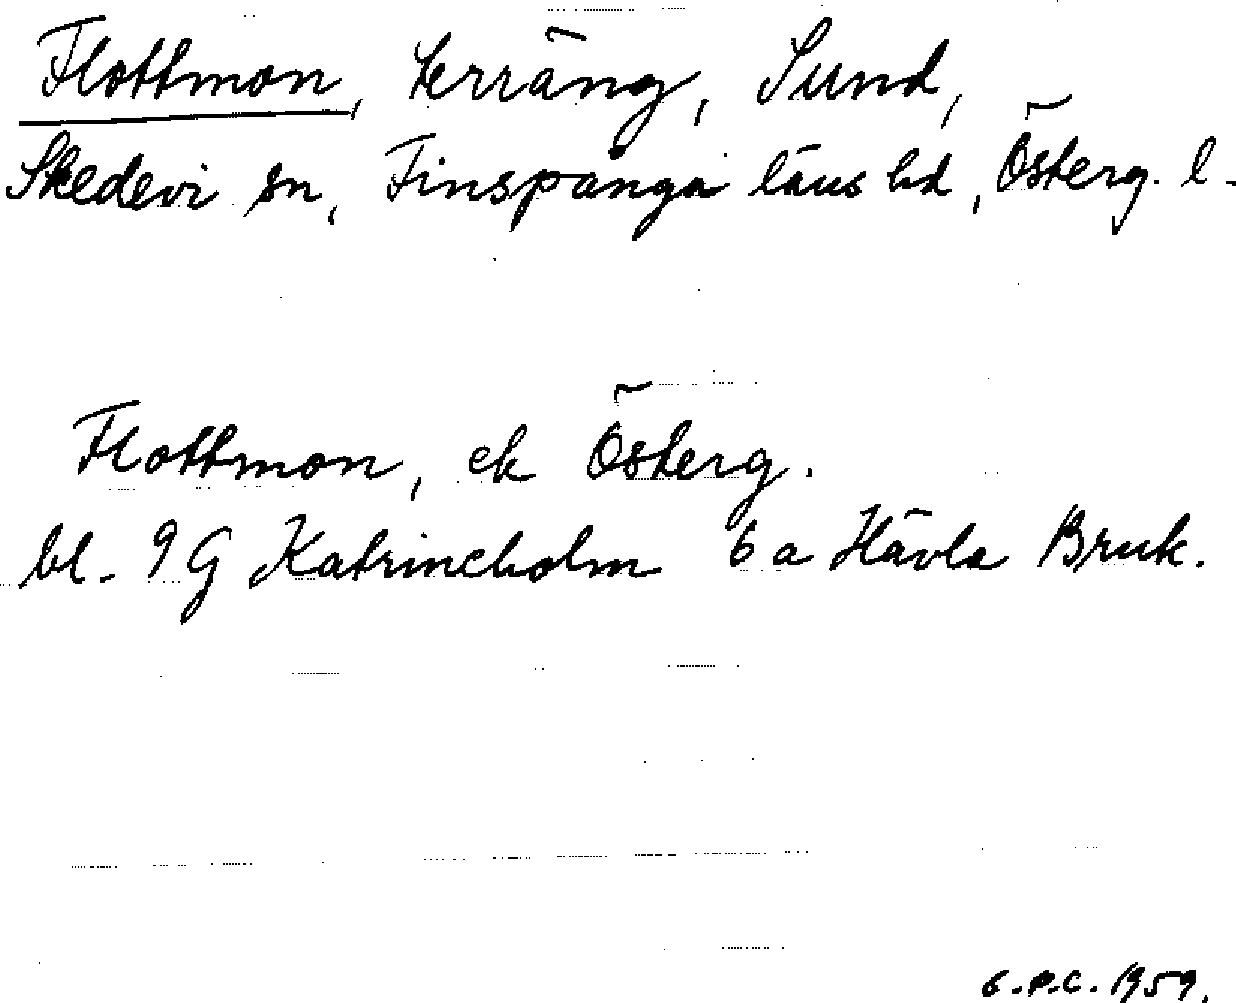 Flottmon, terräng, Sund,
Skedevi sn, Finspånga läns hd, Österg. l.
Flottmon, ek Österg.
bl. 9G Katrineholm 6a Hävla Bruk.
G.P.C. 1959.